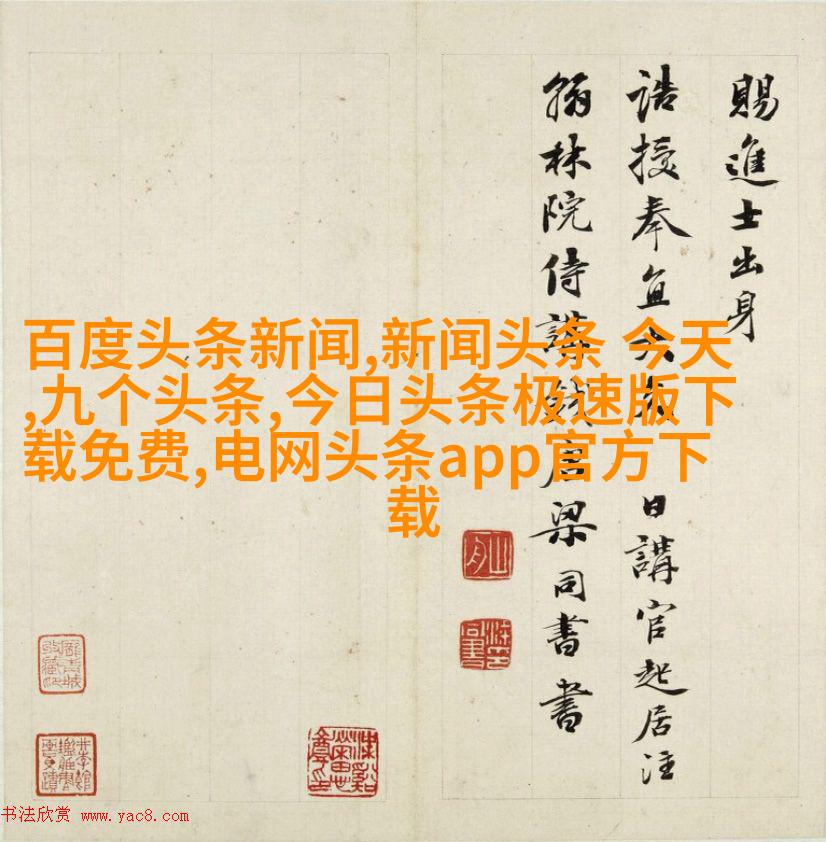 賜進士出身
誥授奉直大夫日講官起居注
翰林院侍講錢唐梁同書書
百度头条新闻,新闻头条 今天
,九个头条,今日头条极速版下
载免费,电网头条app官方下
载
书法欣赏 www.yac8.com